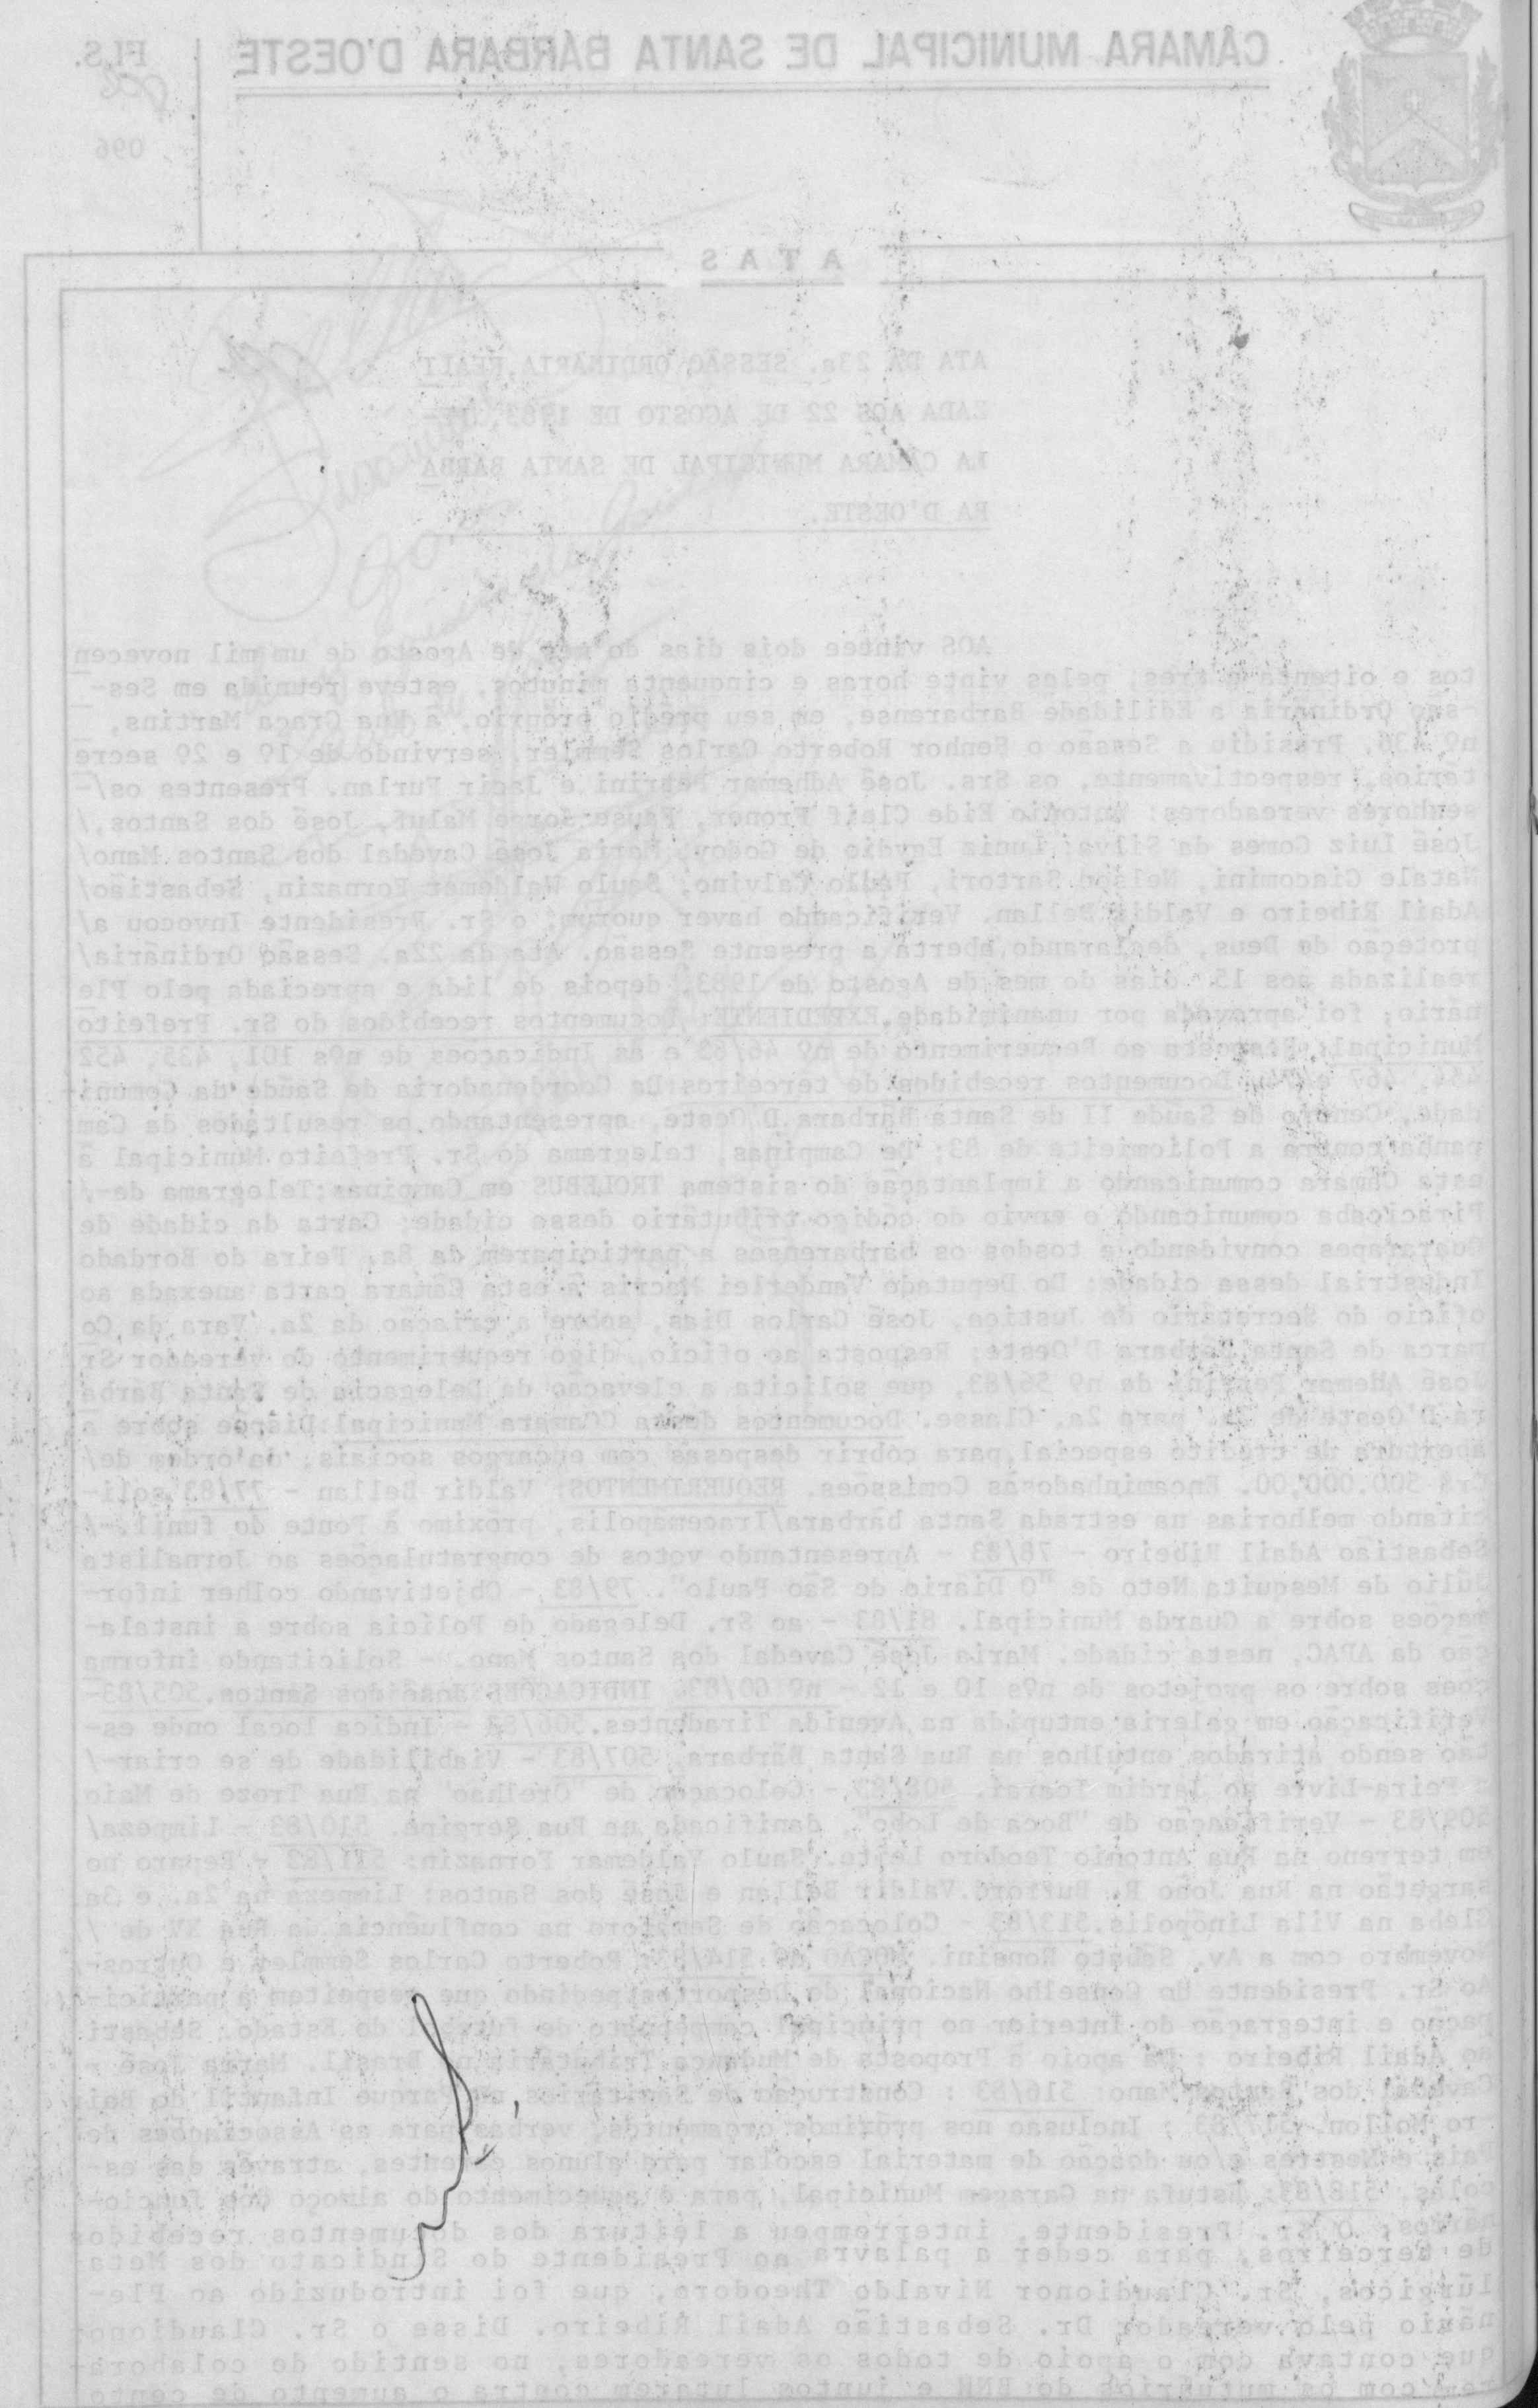 CÂMARA MUNICIPAL DE SANTA BÁRBARA D'OESTE
FLS.
096
ATAS
ATA DA 23a. SESSÃO ORDINÁRIA REALI
ZADA AOS 22 DE AGOSTO DE 1983, NA
CÂMARA MUNICIPAL DE SANTA BÁRBA
RA D'OESTE.
AOS vintee dois dias do mês de Agosto de um mil novecen
tos e oitenta e tres, pelas vinte horas e cinquenta minutos, esteve reunida em Ses-
são Ordinária a Edilidade Barbarense, em seu prédio próprio, à Rua Graça Martins,
nº 436. Presidiu a Sessão o Senhor Roberto Carlos Sêmmler, servindo de 1º e 2º secre
tários, respectivamente, os Srs. José Adhemar Petrini e Jacir Furlan. Presentes os/
senhores vereadores: Antonio Eide Claif Froner, Fause Jorge Maluf, José dos Santos,/
José Luiz Gomes da Silva, Egydio de Godoy, Maria José Cavedal dos Santos Mano/
Natale Giacomini, Nelson Sartori, Calvino, Saulo Waldemar Fornazin, Sebastião/
Adail Ribeiro e Valdir Bellan. Verificando haver quorum, o Sr. Presidente Invocou a/
proteção de Deus, declarando aberta a presente Sessão. Ata da 22a. Sessão Ordinária/
realizada aos 15 dias do mes de Agosto de 1983, depois de lida e apreciada pelo Ple
nário, foi aprovada por unanimidade. EXPEDIENTE: Documentos recebidos do Sr. Prefeito
Municipal: Resposta ao Requerimento de nº 46/83 e às Indicações de nºs 101, 435, 452
454, 467 Documentos recebidos de terceiros: Da Coordenadoria de Saúde da Comuni-
dade, Centro de Saúde II de Santa Bárbara D'Oeste, apresentando os resultados da Cam
panha contra a Poliomielite de 83; De Campinas, telegrama do Sr. Prefeito Municipal à
esta Câmara comunicando a implantação do sistema TROLEBUS em Campinas; Telegrama de-/
Piracicaba comunicando o envio do código tributário dessa cidade; Carta da cidade de
Guararapes convidando a tosdos os barbarenses a participarem da 8a. Feira do Bordado
Industrial dessa cidade; Do Deputado Vanderlei Macris à esta Câmara carta anexada ao
ofício do Secretário de Justiça, José Carlos Dias, sobre a criação da 2a. Vara da Co
marca de Santa Bárbara D'Oeste; Resposta ao ofício, digo requerimento do vereador Sr
José Ademar Petrini de nº 56/83, que solicita a elevação da Delegacia de Santa Bárba
ra D'Oeste de para 2a. Classe. Documentos desta Câmara Municipal: Dispõe sobre a
abertura de crédito especial para cobrir despesas com encargos sociais, na ordem de/
Cr$ 500.000,00. Encaminhado às Comissões. REQUERIMENTOS: Valdir Bellan - 77/83 soli-
citando melhorias na estrada Santa bárbara/Iracemapolis, próximo à Ponte do funil.-/
Sebastião Adail Ribeiro - 78/83 - Apresentando votos de congratulações ao Jornalista
Júlio de Mesquita Neto de "O Diário de São Paulo". 79/83 - Objetivando colher infor-
mações sobre a Guarda Municipal. 81/83 - ao Sr. Delegado de Polícia sobre a instala-
ção da APAC, nesta cidade. Maria José Cavedal dos Santos Mano. - Solicitando informa
ções sobre os projetos de nºs 10 e 12 - nº 60/83. INDICAÇÕES: José dos Santos. 505/83-
Verificação em galeria entupida na Avenida Tiradentes. 506/83 - Indica local onde es-
tão sendo atirados entulhos na Rua Santa Bárbara. 507/83 - Viabilidade de se criar-/
a Feira-Livre no Jardim Icaraí. 508/83 - Colocação de "Orelhão" na Rua Treze de Maio
509/83 - Verificação de "Boca de Lobo", danificada na Rua Sergipe. 510/83 - Limpeza/
em terreno na Rua Antonio Teodoro Leite. Saulo Valdemar Fornazin: 511/83 - Reparo no
Sargetão na Rua João R. Valdir Bellan e José dos Santos: Limpeza na 2a. e 3a.
Gleba na Vila Linópolis. 513/83 - Colocação de Semáforo na confluência da Rua XV de /
Novembro com a Av. Sábato Ronsini. MOÇÃO Nº 514/83: Roberto Carlos Sêmmler e Outros-
Ao Sr. Presidente do Conselho Nacional de Desportos, pedindo que respeitem a partici-
pação e integração do interior no principal campeonato de futebol do Estado. Sebasti
ão Adail Ribeiro : Dá apoio à Proposta de Mudança Tributária no Brasil. Maria José -
Cavedal dos Santos Mano: 516/83 : Construção de Sanitários no Parque Infantil do Bair
ro Mollon. 517/83 : Inclusão nos próximos orçamentos, verbas para as Associações de
Pais e Mestres e/ou doação de material escolar para alunos carentes, através das es-
colas. 518/83: Estufa na Garagem Municipal, para o aquecimento do almoço dos funcio-
nários. O Sr. Presidente, interrompeu a leitura dos documentos recebidos
de terceiros, para ceder a palavra ao Presidente do Sindicato dos Meta-
lúrgicos, Sr. Claudionor Nivaldo Theodoro, que foi introduzido ao Ple-
nário pelo vereador Dr. Sebastião Adail Ribeiro. Disse o Sr. Claudionor
que contava com o apoio de todos os vereadores, no sentido de colabora-
rem com os mutuários do BNH e juntos lutarem contra o aumento de cento